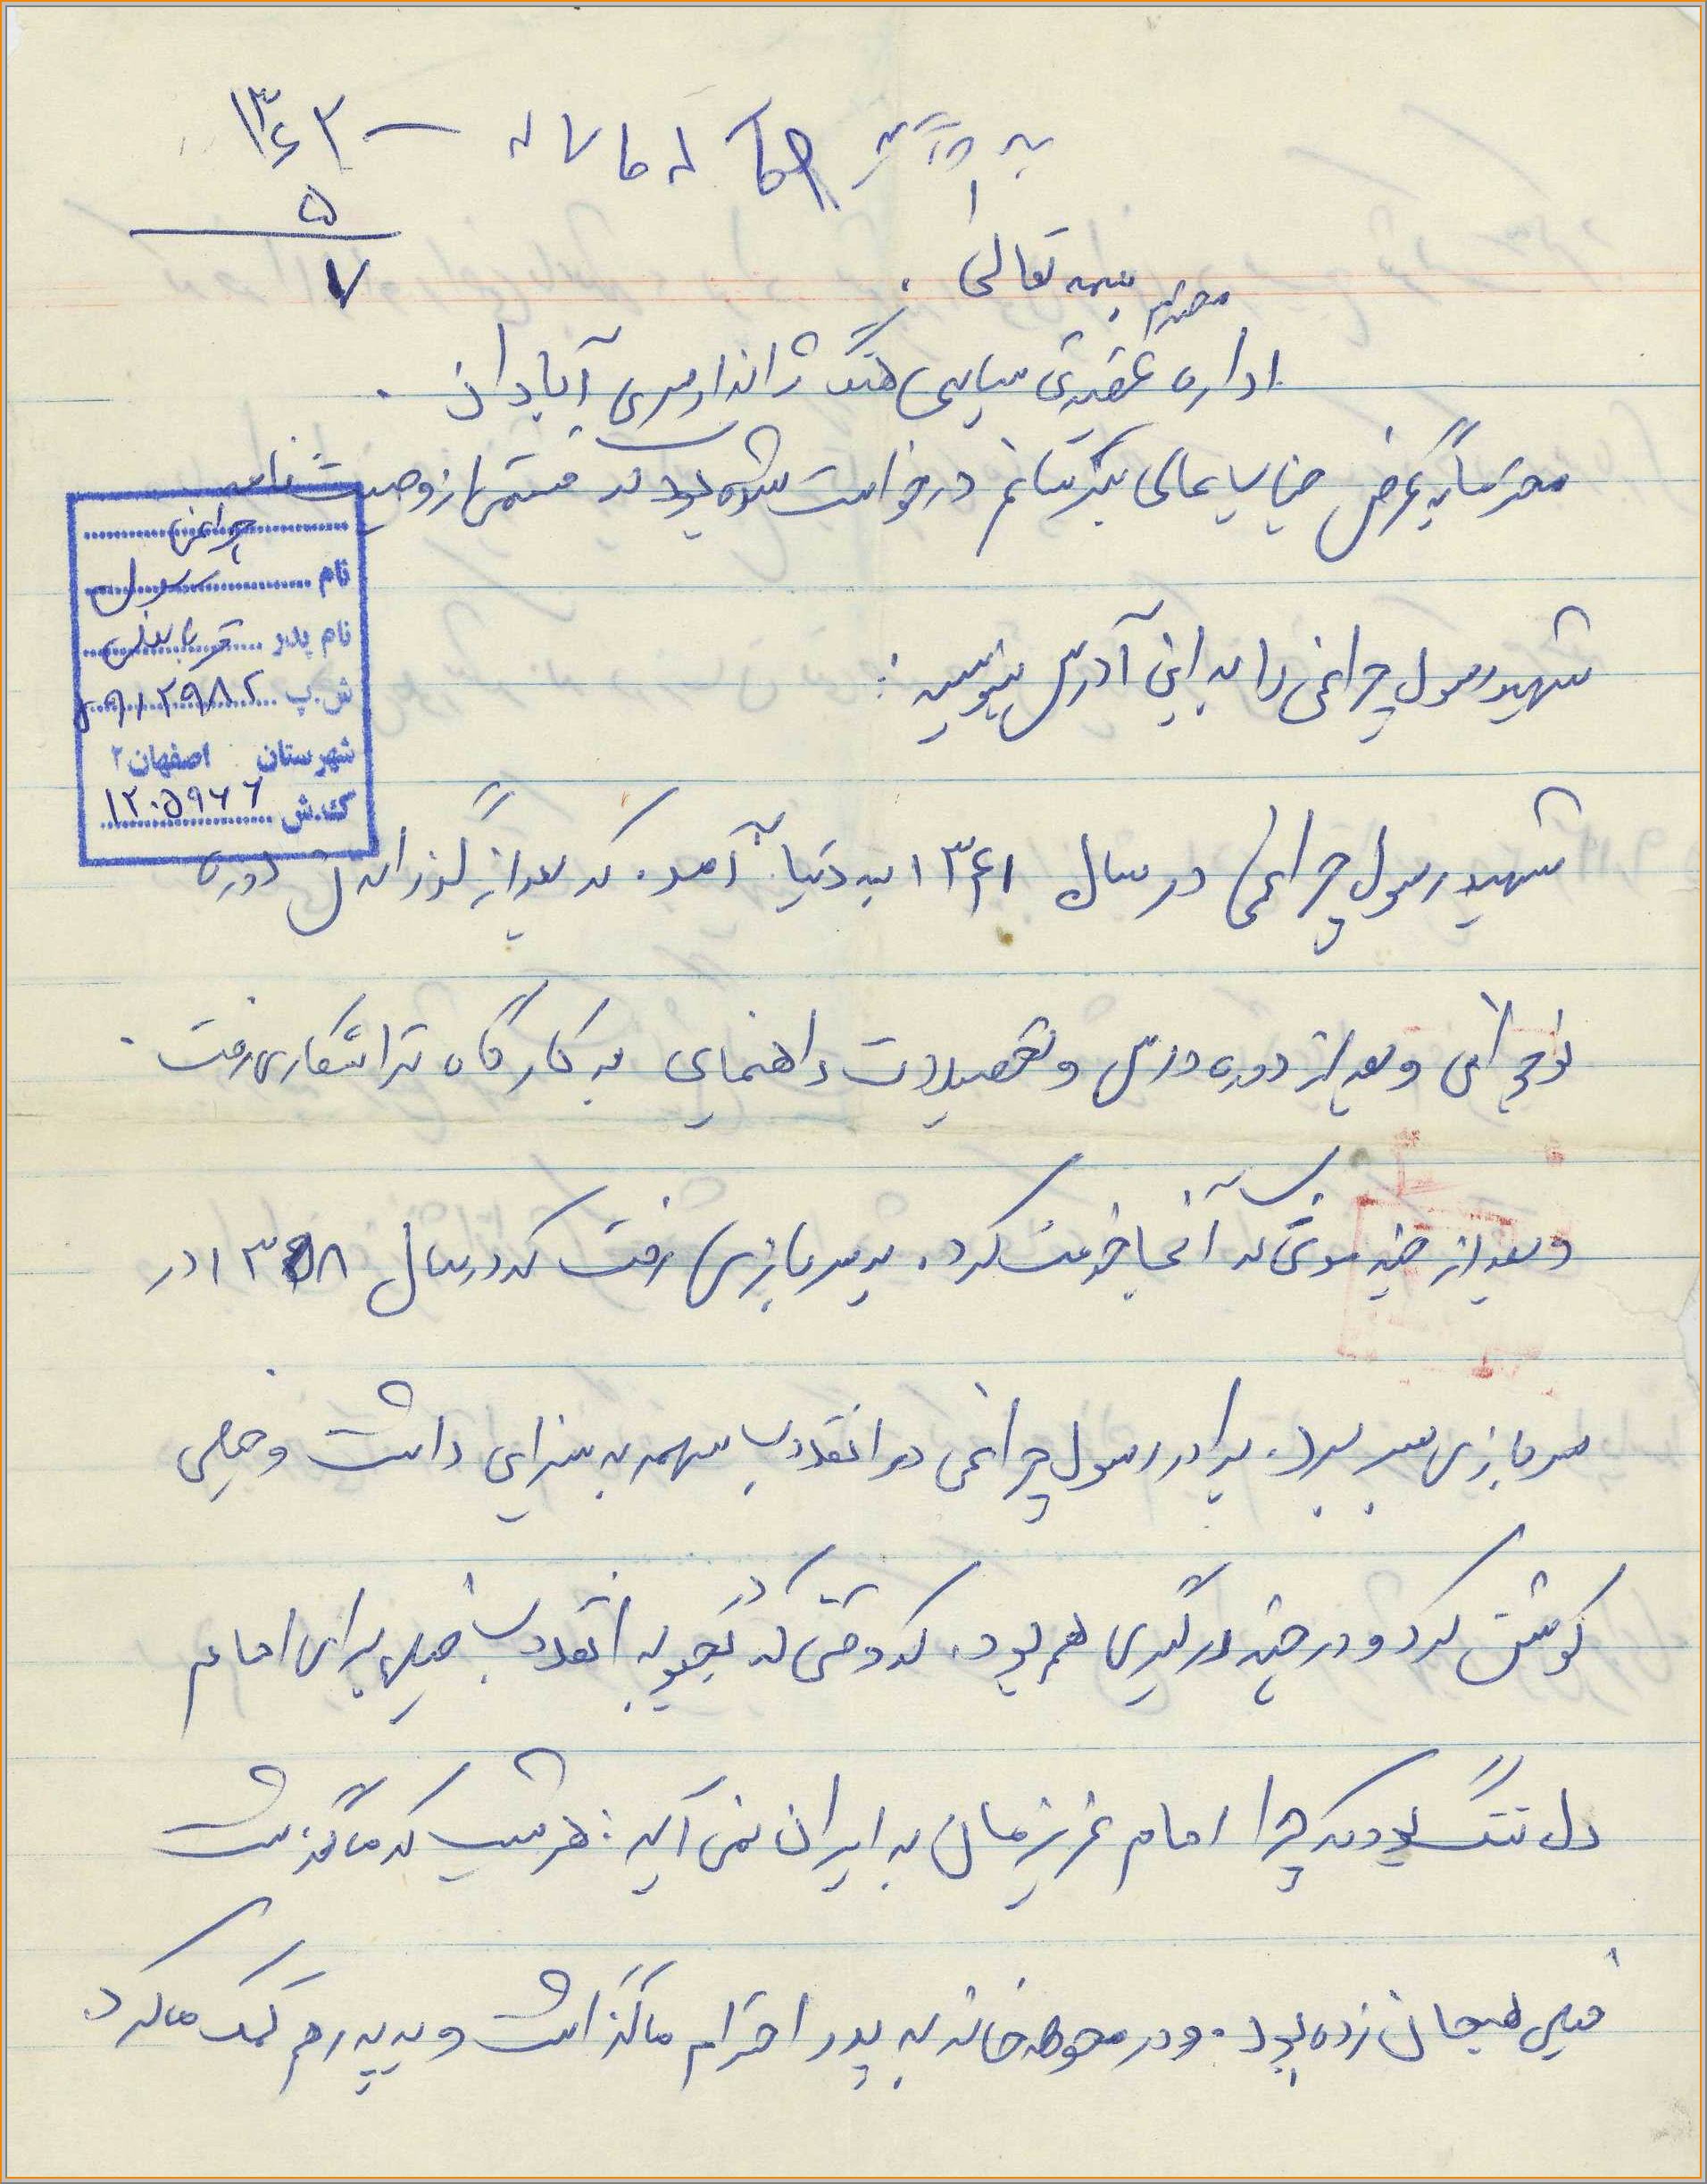 ۱۳۶۲
۵
۷
بسمه تعالی
محترم
اداره عقیدتی سیاسی هنگ ژاندارمری آبادان.
محترما به عرض جنابعالی میرسانم درخواست شده بود که قسمتی از وصیت نامه
شهید رسول چراغی را به این آدرس بنویسید:
شهید رسول چراغی در سال ۱۳۴۱ به دنیا آمد. که بعد از گذراندن دوره
نوجوانی و بعد از دوره درس و تحصیلات راهنمایی به کارگاه تراشکاری رفت.
و بعد از چند سالی که آنجا خدمت کرد. به سربازی رفت که در سال ۱۳۵۸ در
سربازی بسر ببرد. برادر رسول چراغی در انقلاب سهم به سزایی داشت و خیلی
کوشش کرد و در چند درگیری هم بود. که وقتی که در بحبوبه انقلاب خیلی برای امام
دل تنگ بود که چرا امام عزیزمان به ایران نمی آید: هر شب که میگذشت
خیلی هیجان زده بود. و در محوطه خانه به پدر احترام میگذاشت و به پدرم کمک میکرد.
چراغی
نام رسول
نام پدر قربانعلی
ش.پ ۵۹۱۲۹۸۲
شهرستان اصفهان ۲
ک.ش ۱۲۰۵۹۶۶